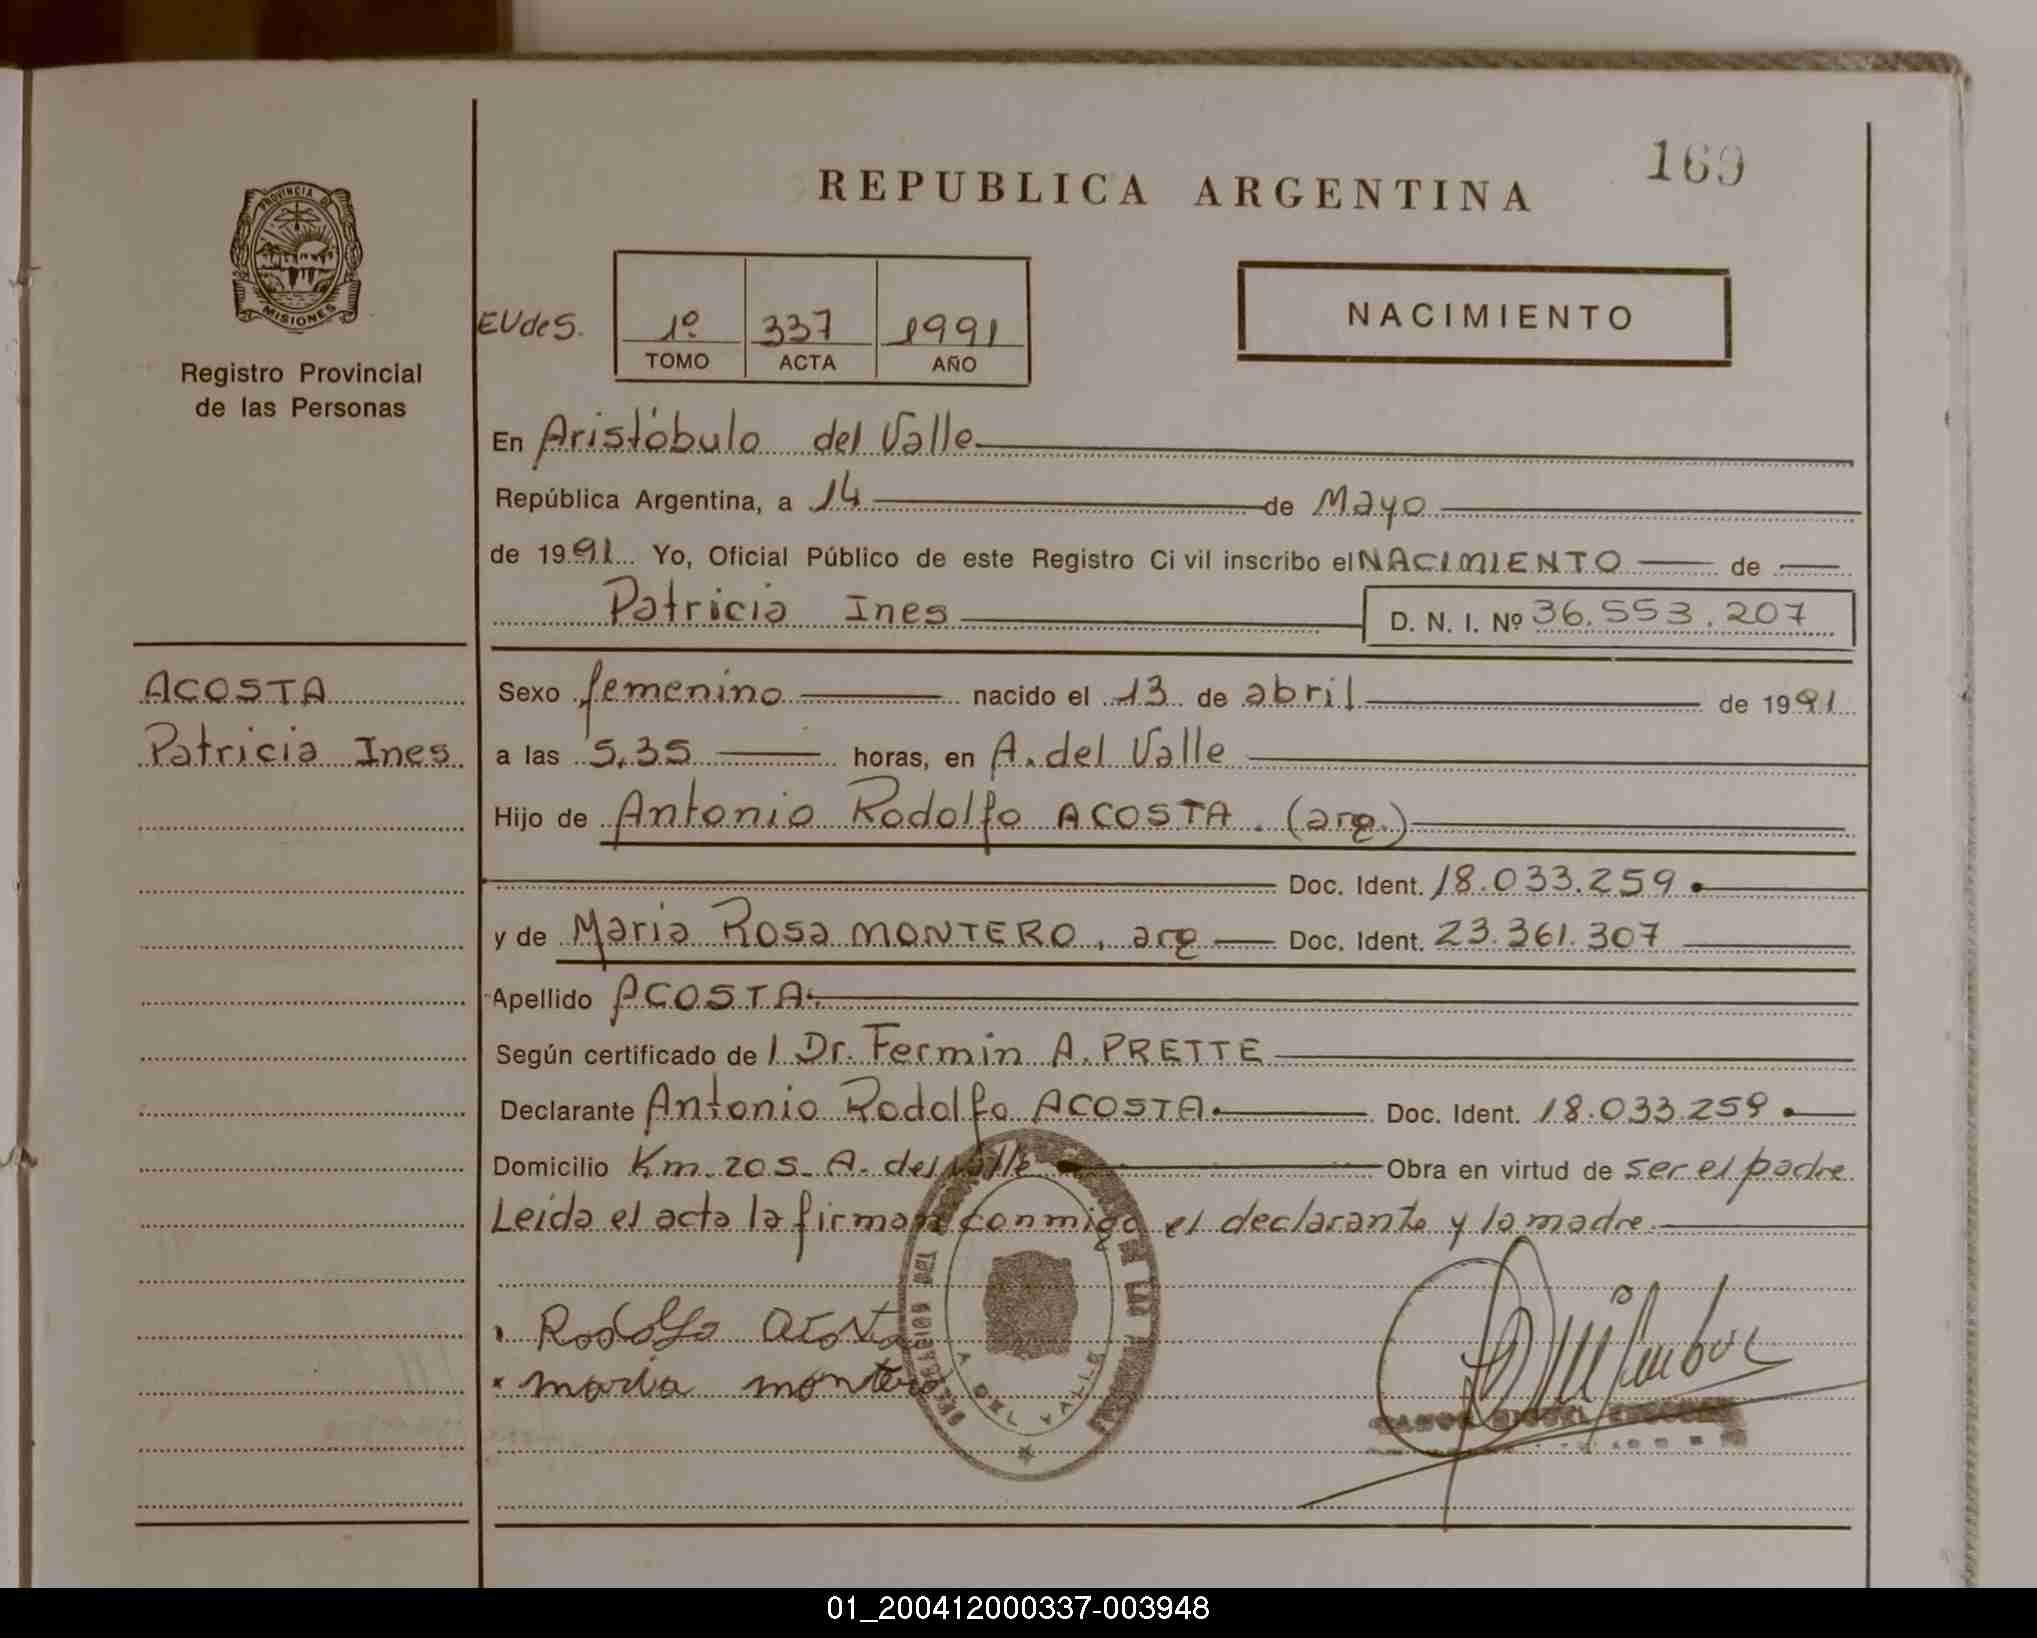 169
REPUBLICA ARGENTINA
PROVINCIA DE
MISIONES
Registro Provincial
de las Personas
EUdeS.
1º 337 1991
TOMO ACTA AÑO
NACIMIENTO
En Aristóbulo del Valle
República Argentina, a 14 de Mayo
de 1991 Yo, Oficial Público de este Registro Ci vil inscribo el NACIMIENTO de
Patricia Ines D. N. I. Nº 36.553.207
ACOSTA
Patricia Ines
Sexo femenino nacido el 13 de abril de 1991
a las 5,35 horas, en A. del Valle
Hijo de Antonio Rodolfo ACOSTA. (arg.)
Doc. Ident. 18.033.259
y de Maria Rosa MONTERO, arg Doc. Ident. 23.361.307
Apellido ACOSTA.
Según certificado de l Dr. Fermin A. PRETTE
Declarante Antonio Rodolfo ACOSTA. Doc. Ident. 18.033.259
Domicilio Km. 205 A. del Valle Obra en virtud de ser el padre
Leida el acta la firman conmigo el declarante y la madre.
Rodolfo Acosta
maria montero
A. DEL VALLE
01_200412000337-003948